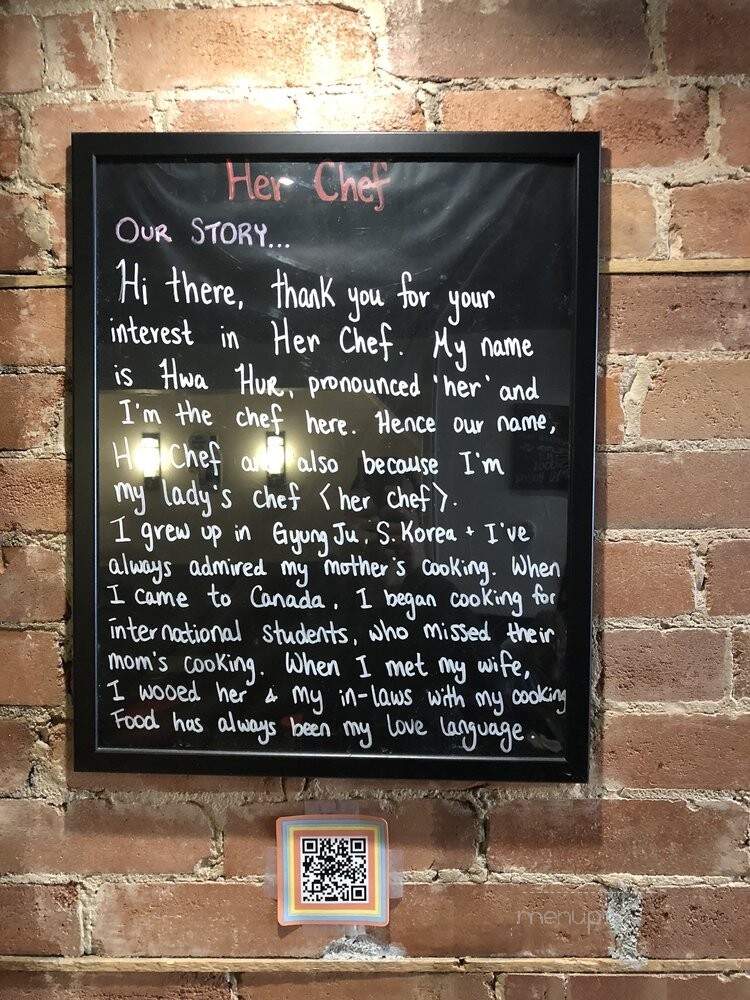 Her Chef
OUR STORY...
Hi there, thank you for your
interest in Her Chef. My name
is Hwa HUR, pronounced 'her' and
I'm the chef here. Hence our name,
Her Chef and also because I'm
my lady's chef <her chef>.
I grew up in GyungJu, S. Korea + I've
always admired my mother's cooking. When
I came to Canada, I began cooking for
international students, who missed their
mom's cooking. When I met my wife,
I wooed her & my in-laws with my cooking
Food has always been my love language.
menupix